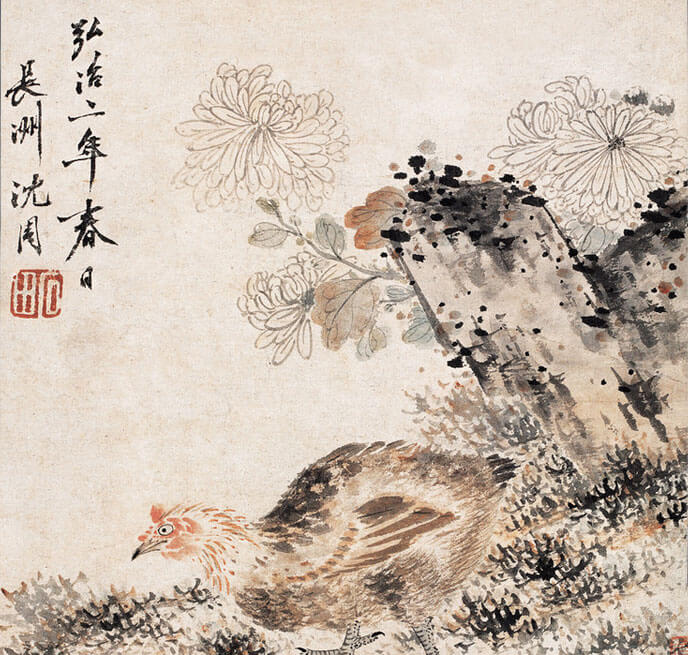 弘治二年春日
長洲沈周